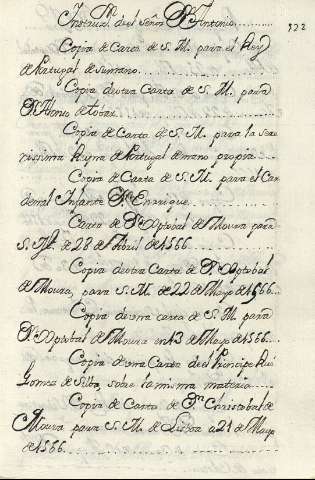 Instruz.n del Señor Dn Antonio
522
Copia de Carta de S. M. para el Rey
de Portugal de su mano
Copia de otra Carta de S. M. para
Dn Alonso de Tobar
Copia de Carta de S. M. para la Se
rissima Reyna de Portugal de mano propia
Copia de Carta de S. M. para el Car
denal Infante Dn Enrrique
Carta de Dn Xptobal de Moura para
S. M. de 28 de Abril de 1566
Copia de otra Carta de Dn Xptobal
de Moura, para S. M. de 22 de Mayo de 1566
Copia de una carta de S. M. para
Dn Xptobal de Moura en 13 de Mayo de 1566
Copia de una Carta del Principe Rui
Gomez de Silba, sobre la misma materia
Copia de Carta de Dn Christobal de
Moura para S. M. de Lisboa a 21 de Mayo
de 1566